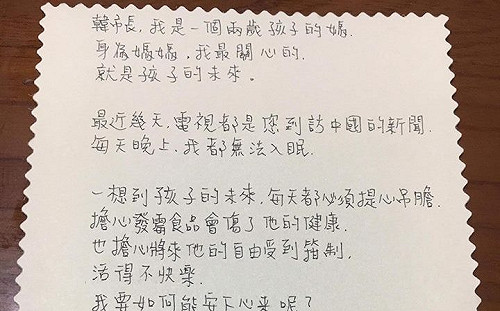 韓市長，我是一個兩歲孩子的媽.
身為媽媽，我最關心的.
就是孩子的未來。
最近幾天，電視都是您到訪中國的新聞.
每天晚上，我都無法入眠.
一想到孩子的未來，每天都必須提心吊膽.
擔心發霉食品會傷了他的健康.
也擔心將來他的自由受到箝制.
活得不快樂.
我要如何能安下心來呢？